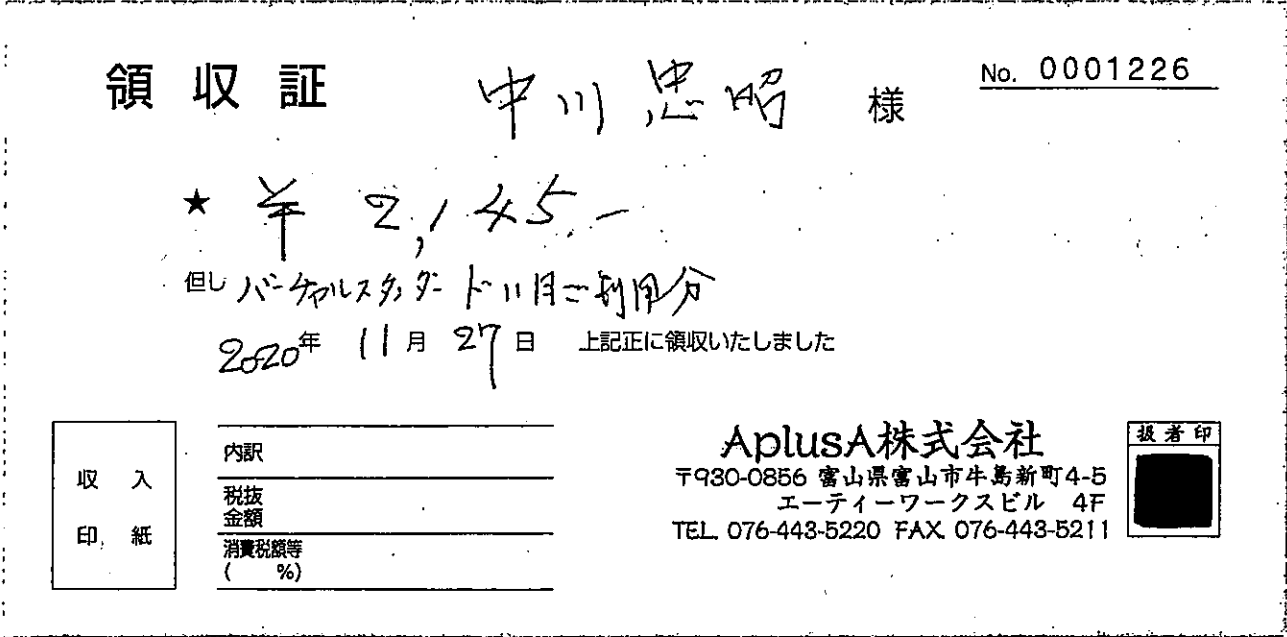 領収証 中川忠昭 様 No. 0001226
★ ¥ 2,145.-
但し バーチャルスタンダード11月ご利用分
2020年 11月 27日 上記正に領収いたしました
収入
印紙
内訳
税抜
金額
消費税額等
( %)
AplusA株式会社
〒930-0856 富山県富山市牛島新町4-5
エーティーワークスビル 4F
TEL. 076-443-5220 FAX. 076-443-5211
扱者印